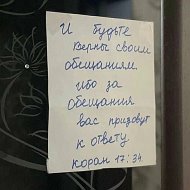 И будьте
верны своим
обещаниям
ибо за
обещания
вас призовут
к ответу
коран 17:34